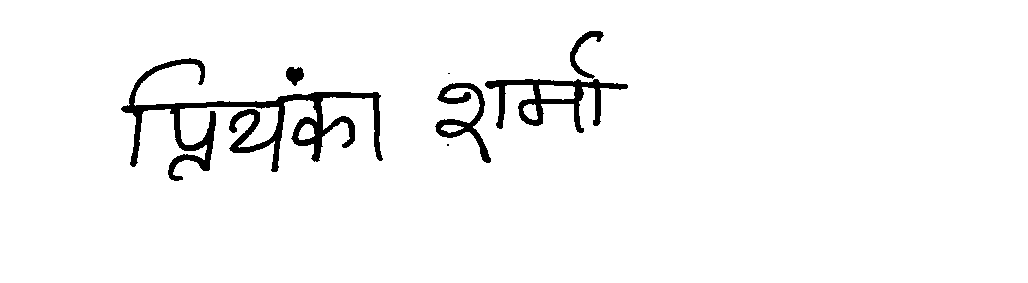 प्रियंका शर्मा